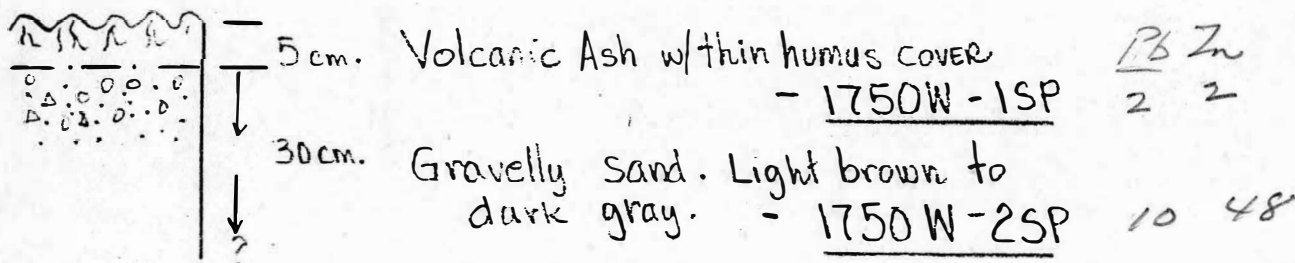 5 cm. Volcanic Ash w/ thin humus COVER Pb Zn
- 1750W - 1SP 2 2
30 cm. Gravelly Sand. Light brown to
dark gray. - 1750 W - 2SP 10 48
?